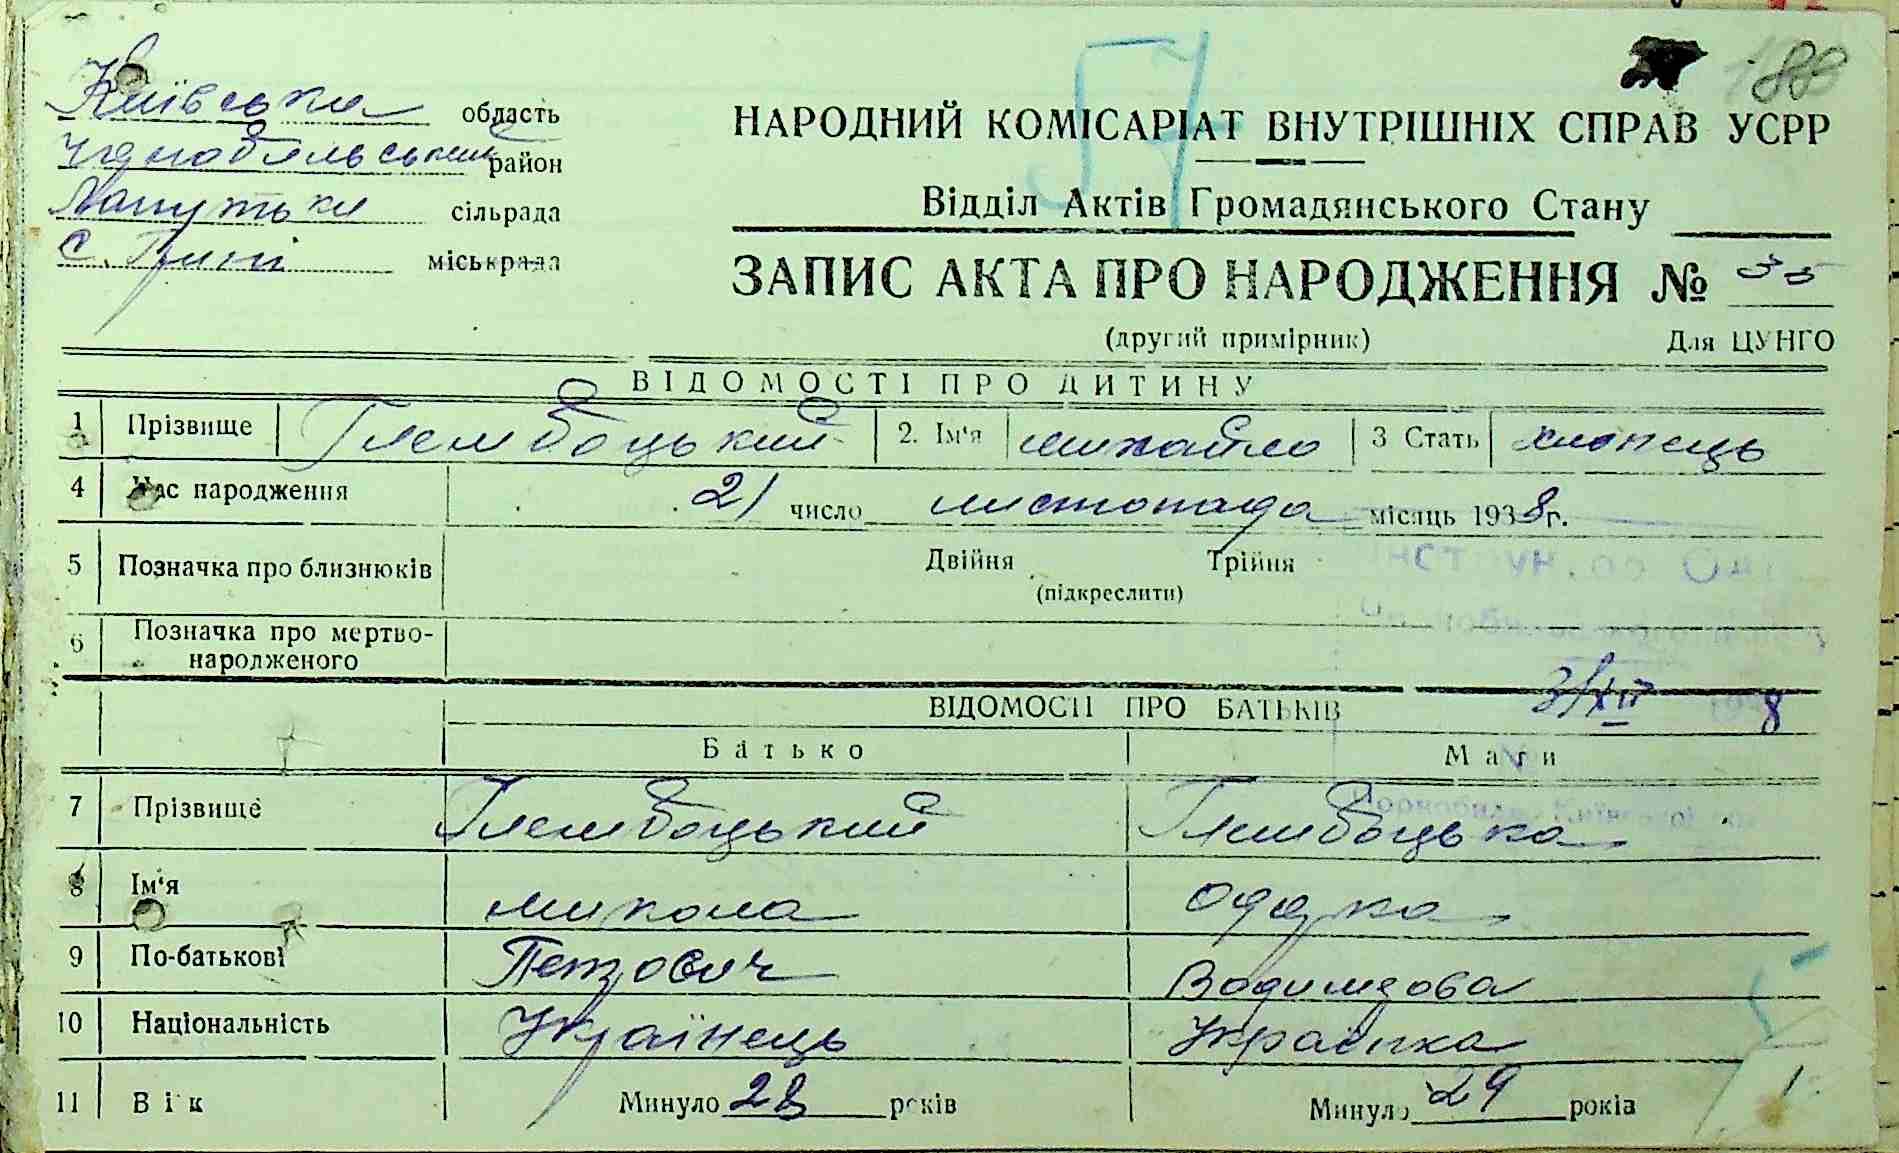 57 188
Київська область
Чорнобильський район
сільрада
с. міськрада
НАРОДНИЙ КОМІСАРІАТ ВНУТРІШНІХ СПРАВ УСРР
Відділ Актів Громадянського Стану
ЗАПИС АКТА ПРО НАРОДЖЕННЯ № 35
(другий примірник) Для ЦУНГО
ВІДОМОСТІ ПРО ДИТИНУ
1 Прізвище Глембоцький 2. Ім'я михайло 3 Стать хлопець
4 Час народження 21 число листопада місяць 1938 г.
5 Позначка про близнюків Двійня Трійня
(підкреслити)
6 Позначка про мертво-
народженого
3/XII 8
ВІДОМОСТІ ПРО БАТЬКІВ
Батько Мати
7 Прізвище Глембоцький Глембоцька
8 Ім'я микола
9 По-батькові Петрович
10 Національність Українець Українка
11 Вік Минуло 28 років Минуло 29 років